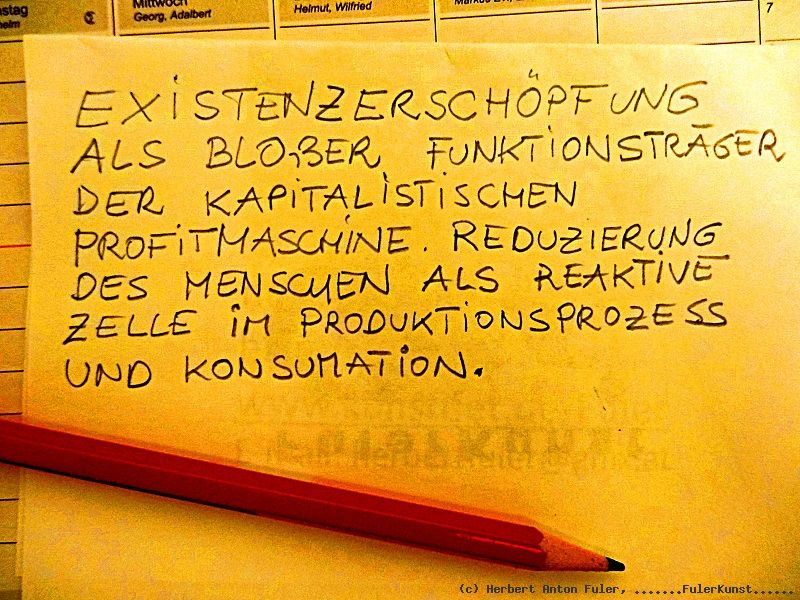 Mittwoch
Georg, Adalbert
Helmut, Wilfried
7
EXISTENZERSCHÖPFUNG
ALS BLOßER FUNKTIONSTRÄGER
DER KAPITALISTISCHEN
PROFITMASCHINE. REDUZIERUNG
DES MENSCHEN ALS REAKTIVE
ZELLE IM PRODUKTIONSPROZESS
UND KONSUMATION.
(c) Herbert Anton Fuler, .......FulerKunst......